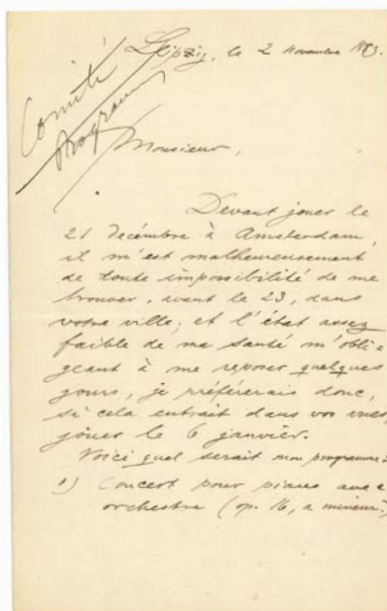 Leipzig, le 2 novembre
Comité
Program
Monsieur,
Devant jouer le
21 decémbre à Amsterdam,
il m'est malheureusement
de toute impossibilité de me
trouver, avant le 23, dans
votre ville; et l'état assez
faible de ma santé m'obli=
geant à me reposer quelques
jours, je préférerais donc,
si cela entrait dans vos vues,
jouer le 6 janvier.
Voici quel serait mon programme:
1) Concert pour piano avec
orchestre (op. 16, a mineur)